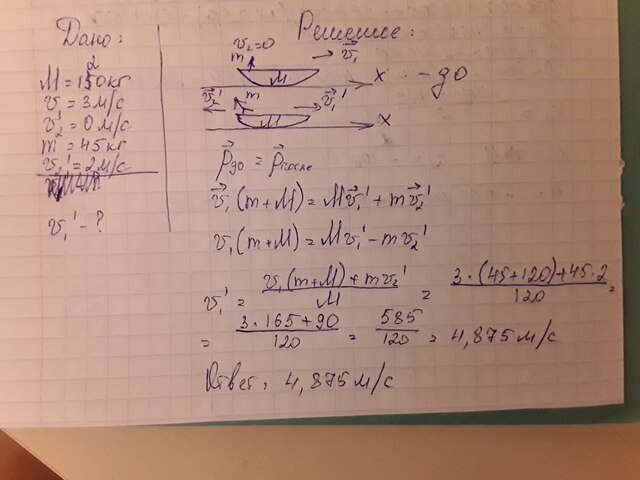 Дано:
M = 120 кг
v = 3 м/с
v₂' = 0 м/с
m = 45 кг
v₁' = 2 м/с
v₁' - ?
Решение:
v₂=0
v⃗₁
m
M
x - до
v⃗₂'
m
v⃗₁'
M
x
p⃗до = p⃗после
v⃗₁(m+M) = Mv⃗₁' + mv⃗₂'
v₁(m+M) = Mv₁' - mv₂'
v₁' = (v₁(m+M) + mv₂')/M = (3·(45+120)+45·2)/120 =
= (3·165+90)/120 = 585/120 = 4,875 м/с
Ответ: 4,875 м/с